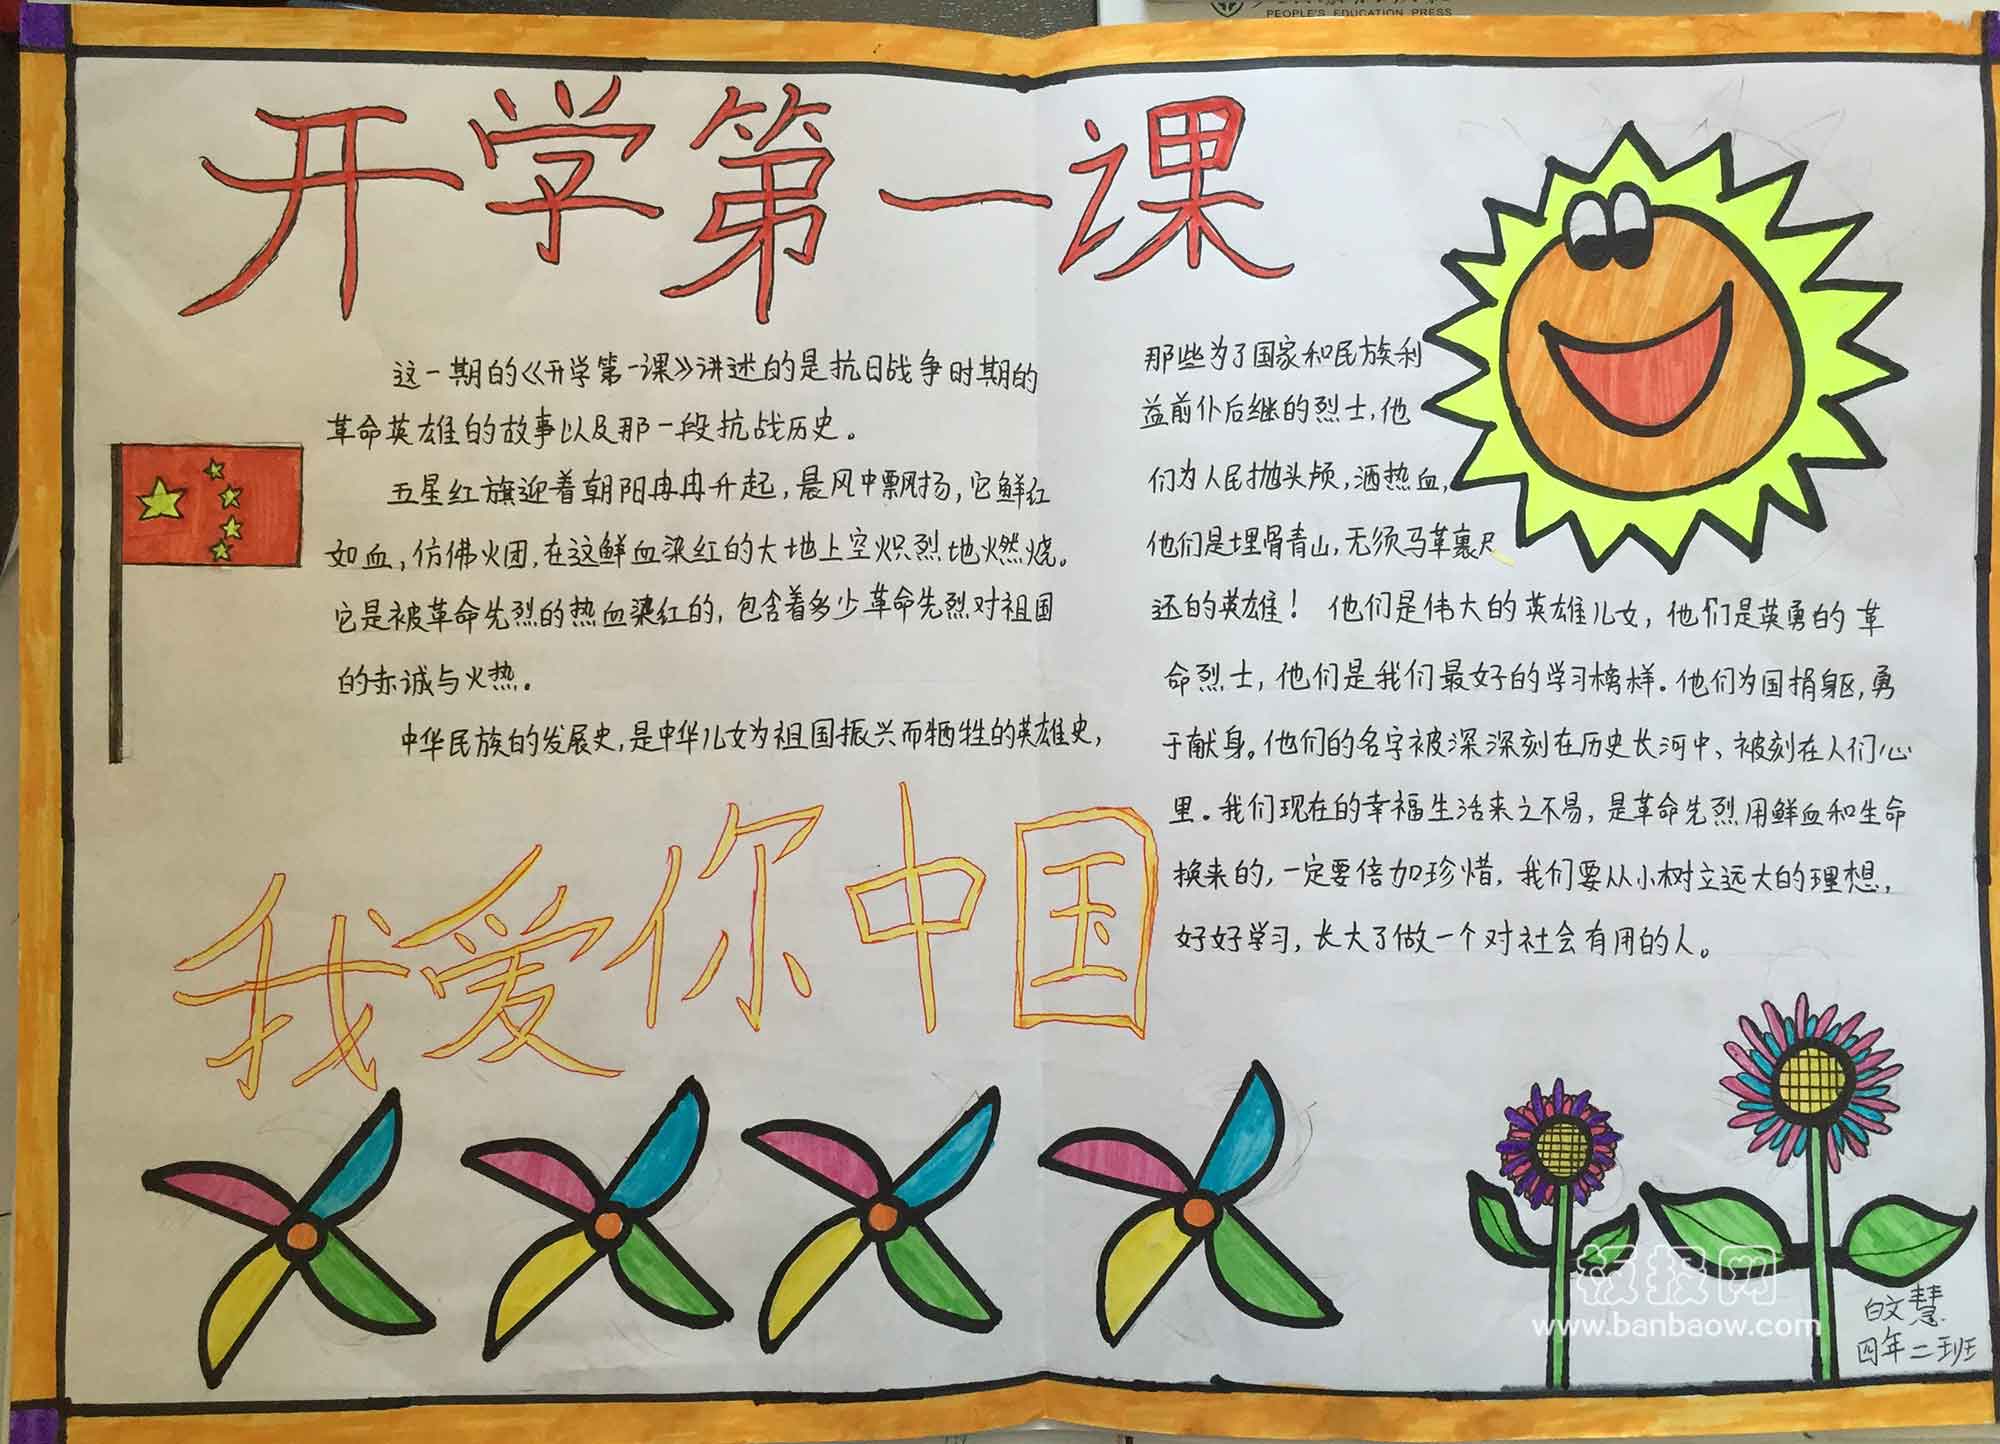 PEOPLE'S EDUCATION PRESS
开学第一课
这一期的《开学第一课》讲述的是抗日战争时期的
革命英雄的故事以及那一段抗战历史。
五星红旗迎着朝阳冉冉升起，晨风中飘扬，它鲜红
如血，仿佛火团，在这鲜血染红的大地上空炽烈地燃烧。
它是被革命先烈的热血染红的，包含着多少革命先烈对祖国
的赤诚与火热。
中华民族的发展史，是中华儿女为祖国振兴而牺牲的英雄史，
我爱你中国
那些为了国家和民族利
益前仆后继的烈士，他
们为人民抛头颅，洒热血，
他们是埋骨青山，无须马革裹尸
还的英雄！ 他们是伟大的英雄儿女，他们是英勇的革
命烈士，他们是我们最好的学习榜样。他们为国捐躯，勇
于献身。他们的名字被深深刻在历史长河中、被刻在人们心
里。我们现在的幸福生活来之不易，是革命先烈用鲜血和生命
换来的，一定要倍加珍惜，我们要从小树立远大的理想，
好好学习，长大了做一个对社会有用的人。
板报网
www.banbaow.com
白文慧
四年二班